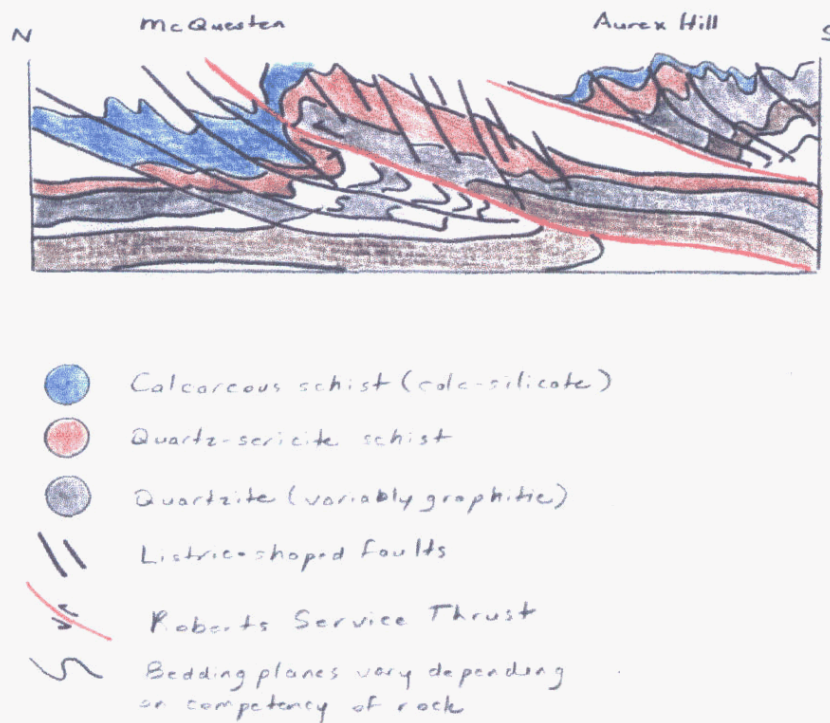 McQuesten
Aurex Hill
N
S
Calcareous schist (calc-silicate)
Quartz-sericite schist
Quartzite (variably graphitic)
Listric-shaped faults
Roberts Service Thrust
Bedding planes vary depending
on competency of rock